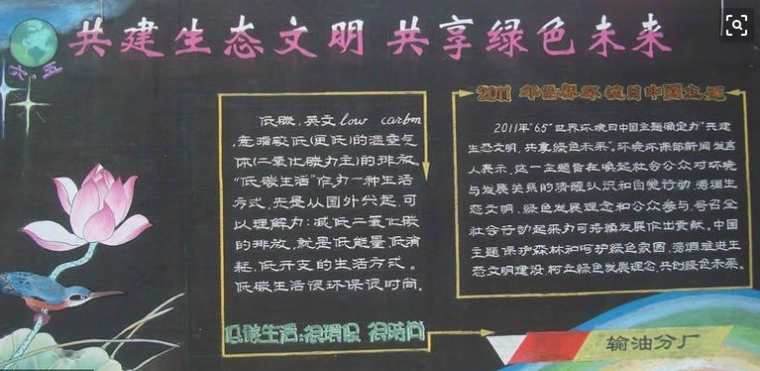 共建生态文明 共享绿色未来
六·五
低碳，英文low carbon，
意指较低(更低)的温室气
体(二氧化碳为主)的排放。
“低碳生活”作为一种生活
方式，先是从国外兴起，可
以理解为：减低二氧化碳
的排放，就是低能量低消
耗，低开支的生活方式。
低碳生活很环保很时尚。
低碳生活：很环保 很时尚
2011年世界环境日中国主题
2011年“65”世界环境日中国主题确定为“共建
生态文明，共享绿色未来”。环境环保部新闻发言
人表示，这一主题旨在唤起社会公众对环境
与发展关系的清醒认识和自觉行动，
生态文明、绿色发展理念和公众参与，号召全
社会行动起来为可持续发展作出贡献。中国
主题保护森林和呵护绿色家园，
态文明建设，树立绿色发展理念，共创绿色未来。
输油分厂